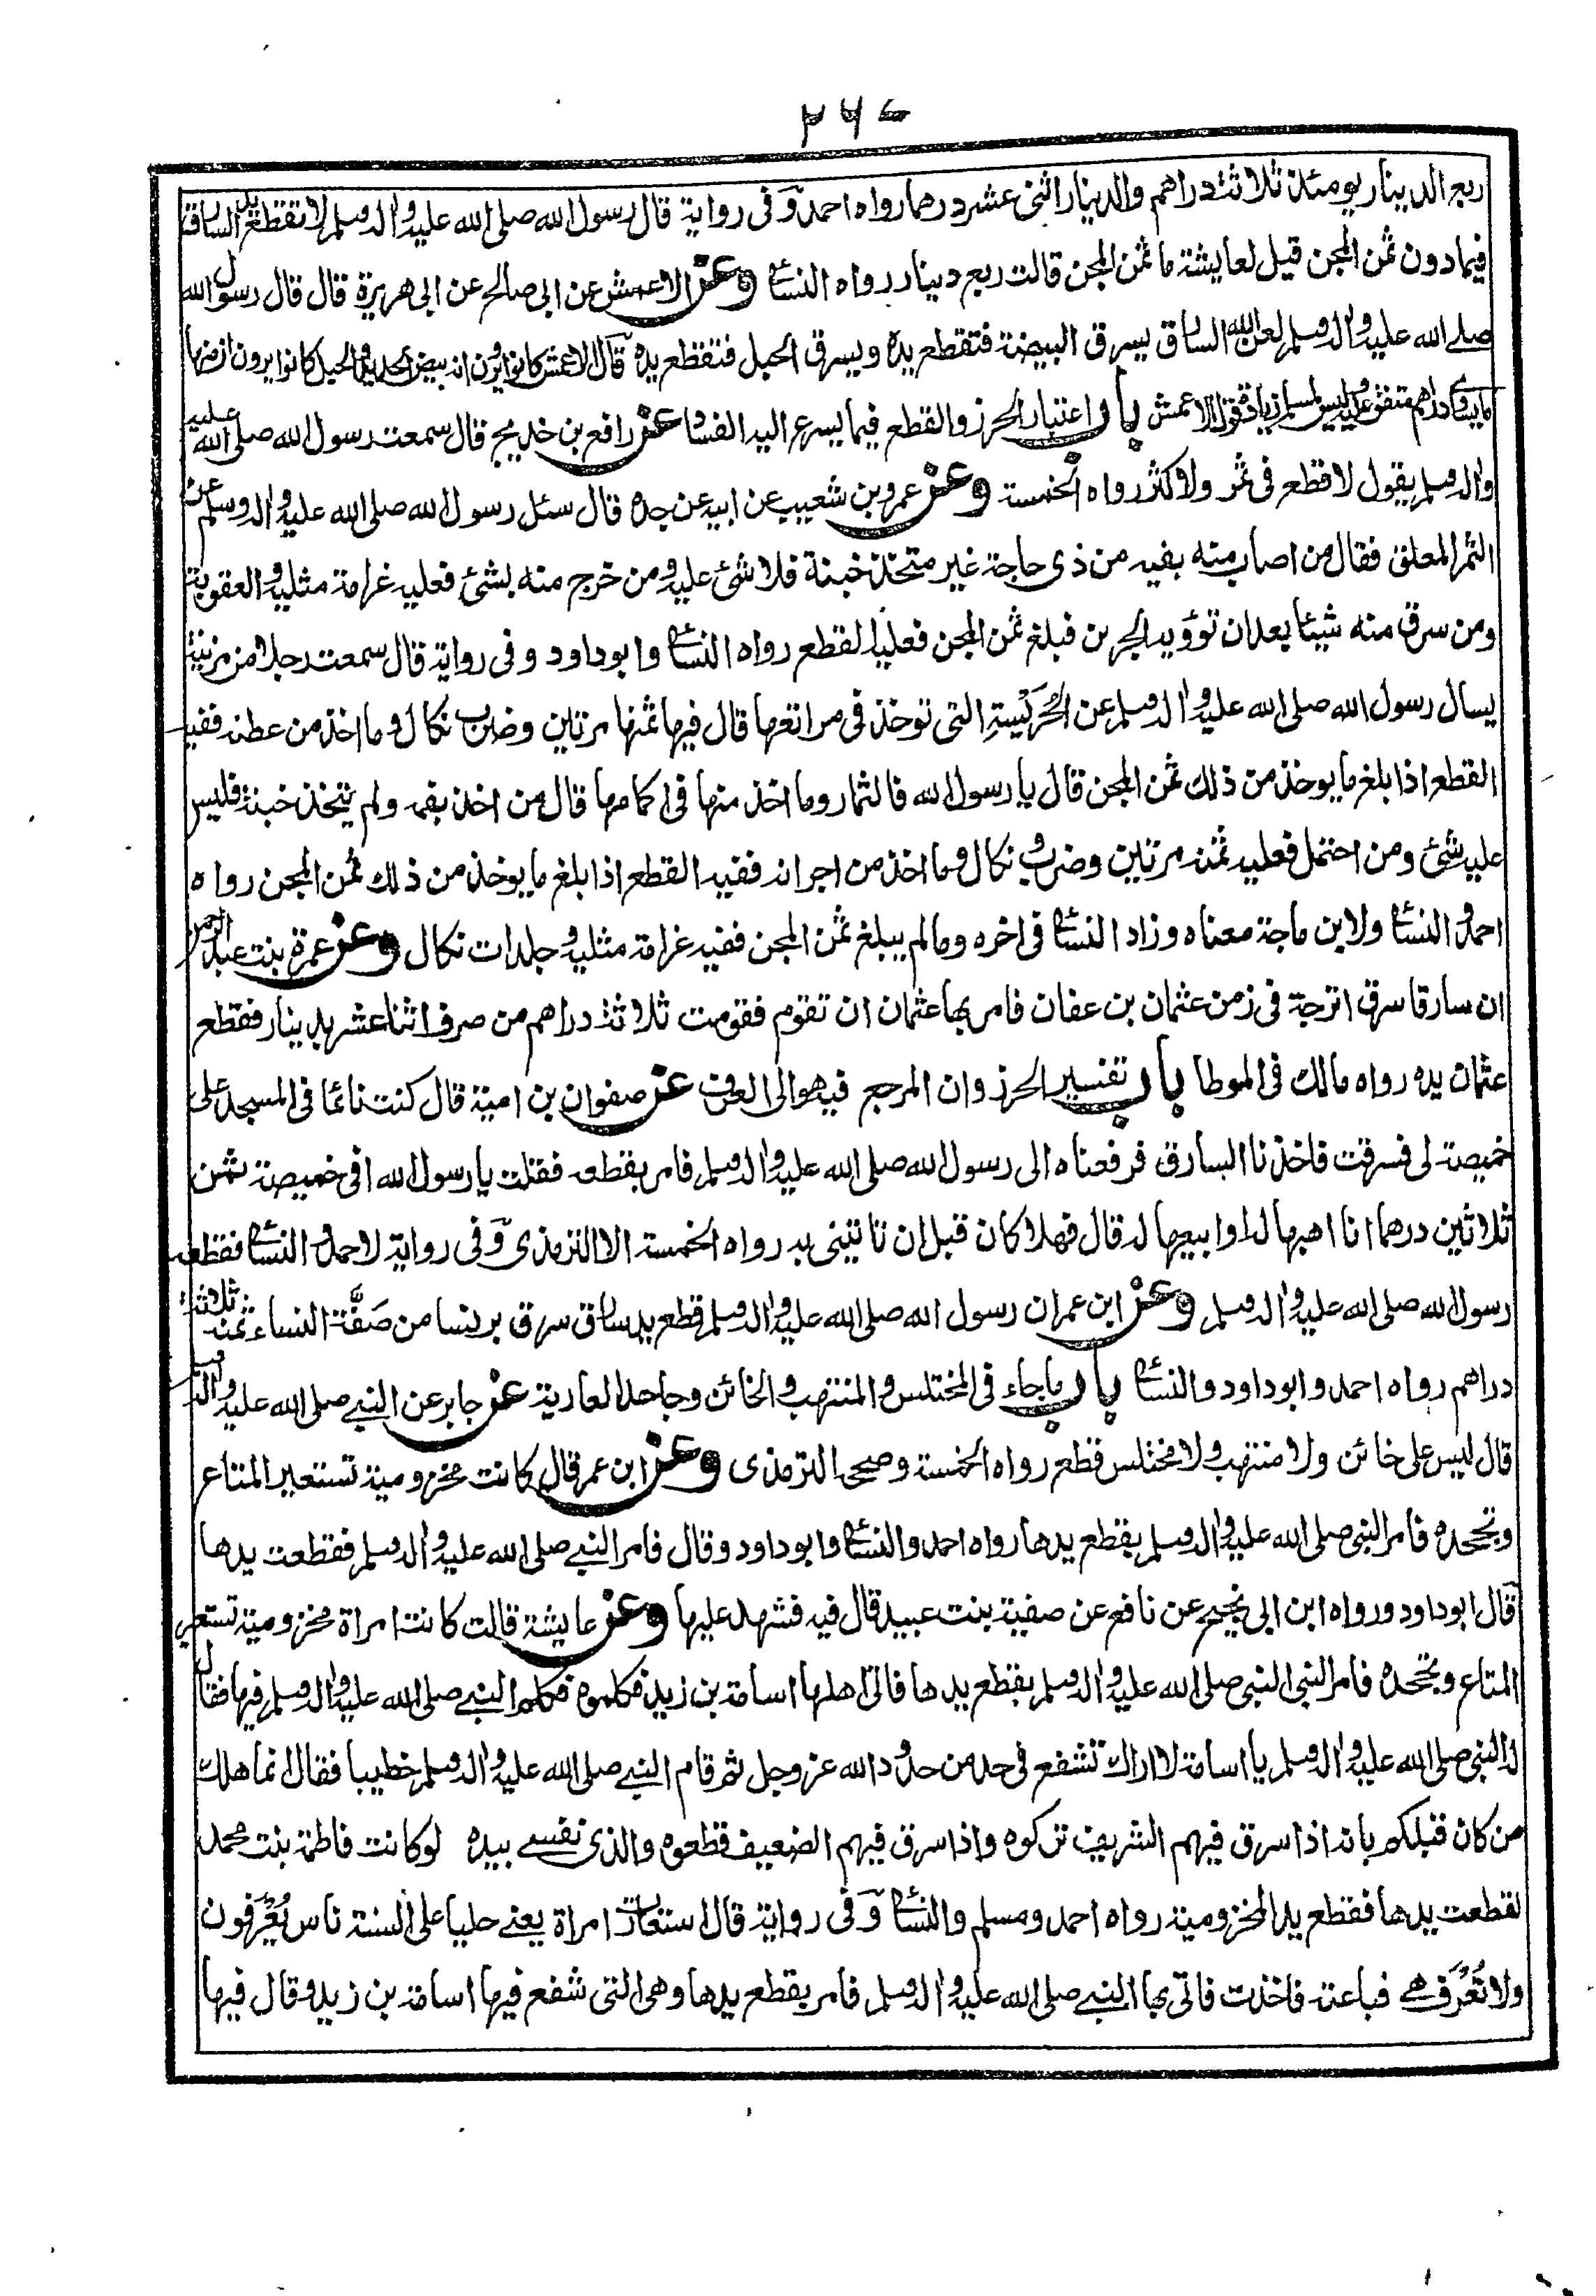 ٢٦٧
ربع الدينار يومئذ ثلاثة دراهم والدينار اثنى عشر درهما رواه احمد وفى رواية قال رسول الله صلى الله عليه واله وسلم لا تقطع يد السارق
فيما دون ثمن المجن قيل لعايشة ما ثمن المجن قالت ربع دينار رواه النسائى وعن الاعمش عن ابى صالح عن ابى هريرة قال قال رسول الله
صلى الله عليه واله وسلم لعن الله السارق يسرق البيضة فتقطع يده ويسرق الحبل فتقطع يده قال الاعمش كانوا يرون انه بيض الحديد والحبل كانوا يرون ان منها
ما يساوى دراهم متفق عليه وليس لمسلم زيادة قول الاعمش باب اعتبار الحرز والقطع فيما يسرع اليه الفساد عن رافع بن خديج قال سمعت رسول الله صلى الله عليه
واله وسلم يقول لا قطع فى ثمر ولا كثر رواه الخمسة وعن عمرو بن شعيب عن ابيه عن جده قال سئل رسول الله صلى الله عليه واله وسلم عن
الثمر المعلق فقال من اصاب منه بفيه من ذى حاجة غير متخذ خبنة فلا شئ عليه ومن خرج منه بشئ فعليه غرامة مثليه والعقوبة
ومن سرق منه شيئا بعد ان تؤويه الجرين فبلغ ثمن المجن فعليه القطع رواه النسائى وابوداود وفى رواية قال سمعت رجلا من مزينة
يسال رسول الله صلى الله عليه واله وسلم عن الحَرِيْسَةِ التى توخذ فى مراتعها قال فيها ثمنها مرتين وضرب نكال وما اخذ من عطنه ففيه
القطع اذا بلغ ما يوخذ من ذلك ثمن المجن قال يا رسول الله فالثمار وما اخذ منها فى اكمامها قال من اخذ بفمه ولم يتخذ خبنة فليس
عليه شئ ومن احتمل فعليه ثمنه مرتين وضرب نكال وما اخذ من اجرانه ففيه القطع اذا بلغ ما يوخذ من ذلك ثمن المجن رواه
احمد والنسائى ولابن ماجة معناه وزاد النسائى فى اخره وما لم يبلغ ثمن المجن ففيه غرامة مثليه وجلدات نكال وعن عمرة بنت عبد الرحمن
ان سارقا سرق اترجة فى زمن عثمان بن عفان فامر بها عثمان ان تقوم فقومت ثلاثة دراهم من صرف اثنا عشر بدينار فقطع
عثمان يده رواه مالك فى الموطا باب تفسير الحرز وان المرجع فيه هو الى العرف عن صفوان بن امية قال كنت نائما فى المسجد على
خميصة لى فسرقت فاخذنا السارق فرفعناه الى رسول الله صلى الله عليه واله وسلم فامر بقطعه فقلت يا رسول الله افى خميصة ثمن
ثلاثين درهما انا اهبها له او ابيعها له قال فهلا كان قبل ان تاتينى به رواه الخمسة الا الترمذى وفى رواية لاحمد والنسائى فقطعه
رسول الله صلى الله عليه واله وسلم وعن ابن عمر ان رسول الله صلى الله عليه واله وسلم قطع يد سارق سرق برنسا من صُفَّة النساء ثمنه ثلاثة
دراهم رواه احمد وابوداود والنسائى باب ما جاء فى المختلس والمنتهب والخائن وجاحد العارية عن جابر عن النبى صلى الله عليه واله وسلم
قال ليس على خائن ولا منتهب ولا مختلس قطع رواه الخمسة وصححه الترمذى وعن ابن عمر قال كانت مخزومية تستعير المتاع
وتجحده فامر النبى صلى الله عليه واله وسلم بقطع يدها رواه احمد والنسائى وابوداود وقال فامر النبى صلى الله عليه واله وسلم فقطعت يدها
قال ابوداود ورواه ابن ابى نجيح عن نافع عن صفية بنت عبيد قال فيه فشهد عليها وعن عايشة قالت كانت امراة مخزومية تستعير
المتاع وتجحده فامر النبى النبى صلى الله عليه واله وسلم بقطع يدها فاتى اهلها اسامة بن زيد فكلموه فكلم النبى صلى الله عليه واله وسلم فيها فقال
له النبى صلى الله عليه واله وسلم يا اسامة لا اراك تشفع فى حد من حدود الله عز وجل ثم قام النبى صلى الله عليه واله وسلم خطيبا فقال انما هلك
من كان قبلكم بانه اذا سرق فيهم الشريف تركوه واذا سرق فيهم الضعيف قطعوه والذى نفسى بيده لو كانت فاطمة بنت محمد
لقطعت يدها فقطع يد المخزومية رواه احمد ومسلم والنسائى وفى رواية قال استعارت امراة يعنى حليا على السنة ناس يُعْرَفون
ولا تُعْرَف هى فباعته فاخذت فاتى بها النبى صلى الله عليه واله وسلم فامر بقطع يدها وهى التى شفع فيها اسامة بن زيد وقال فيها